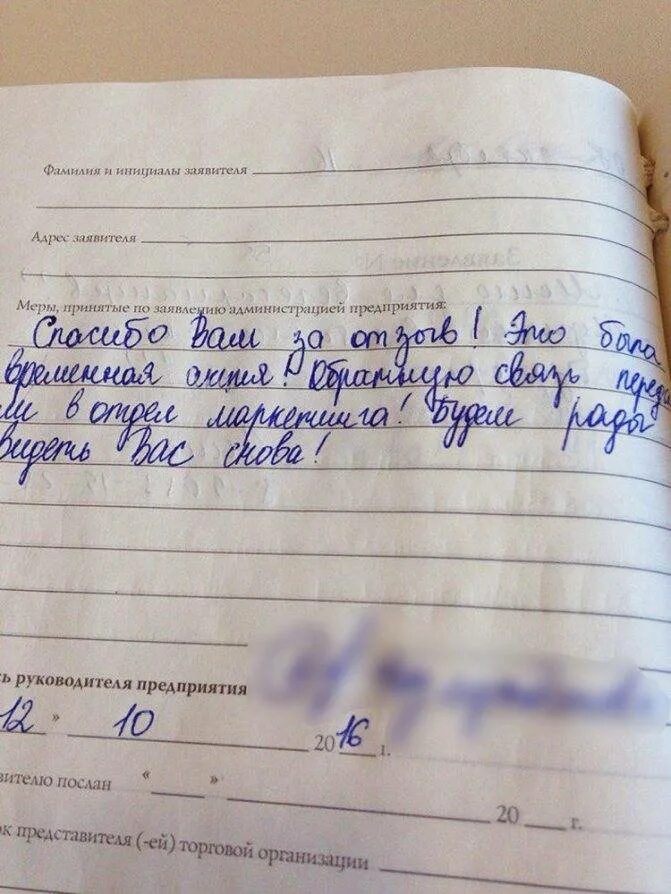 Фамилия и инициалы заявителя
Адрес заявителя
Меры, принятые по заявлению администрацией предприятия:
Спасибо Вам за отзыв! Это была
временная акция! Обратную связь переда
ли в отдел маркетинга! Будем рады
видеть Вас снова!
ь руководителя предприятия
12 » 10 2016 г.
вителю послан « » 20 г.
ок представителя (-ей) торговой организации